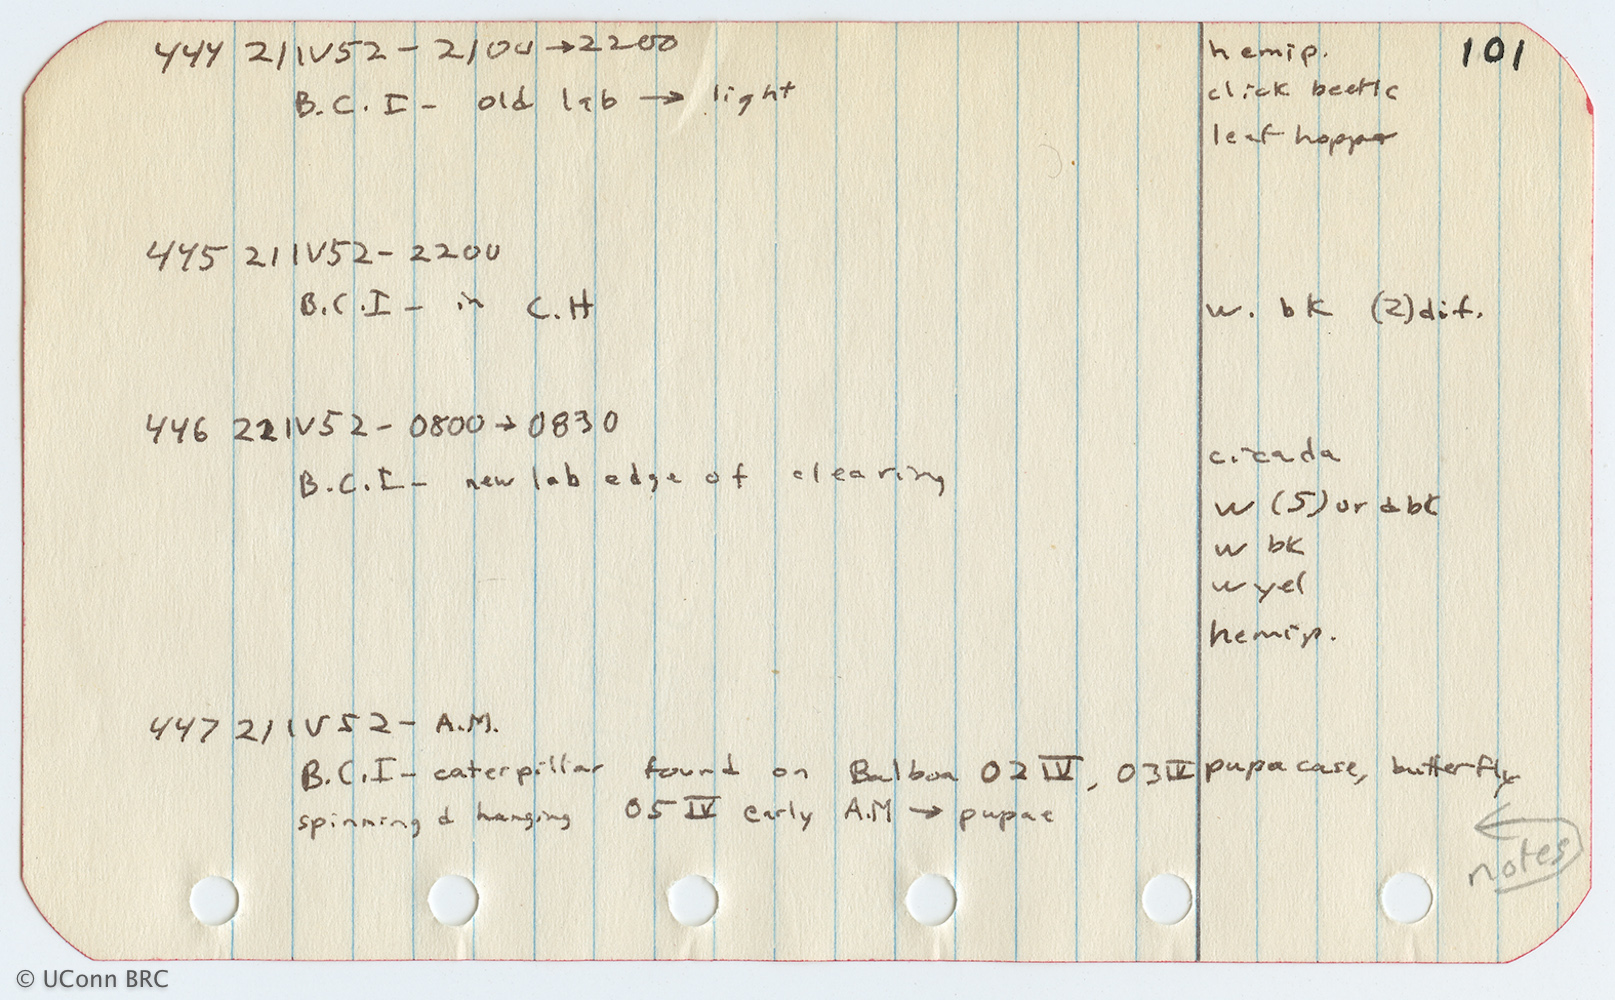 101
444 21IV52 - 2100 → 2200 hemip.
B.C.I - old lab → light click beetle
leaf hopper
445 21IV52 - 2200
B.C.I - in C.H w. bk (2) dif.
446 22IV52 - 0800 → 0830
cicada
B.C.I - new lab edge of clearing
w (5) or d bk
w bk
w yel
hemip.
447 21IV52 - A.M.
B.C.I - caterpillar found on Balboa 02 IV, 03 IV pupa case, butterfly
spinning d hanging 05 IV early A.M → pupae
notes
© UConn BRC